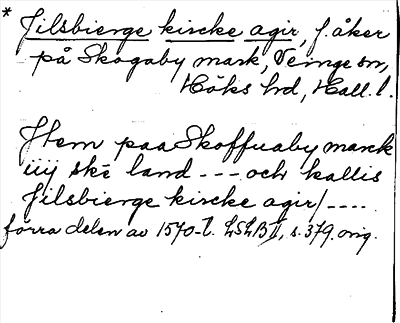 * Jilsbierge kircke agir, f. åker
på Skogaby mark, Veinge sn,
Höks hd, Hall. l.
Item paa Skoffuaby marck
iiij ske land --- och kallis
Jilsbierge kircke agir/----
förra delen av 1570-t. LSLB II, s. 379. orig.